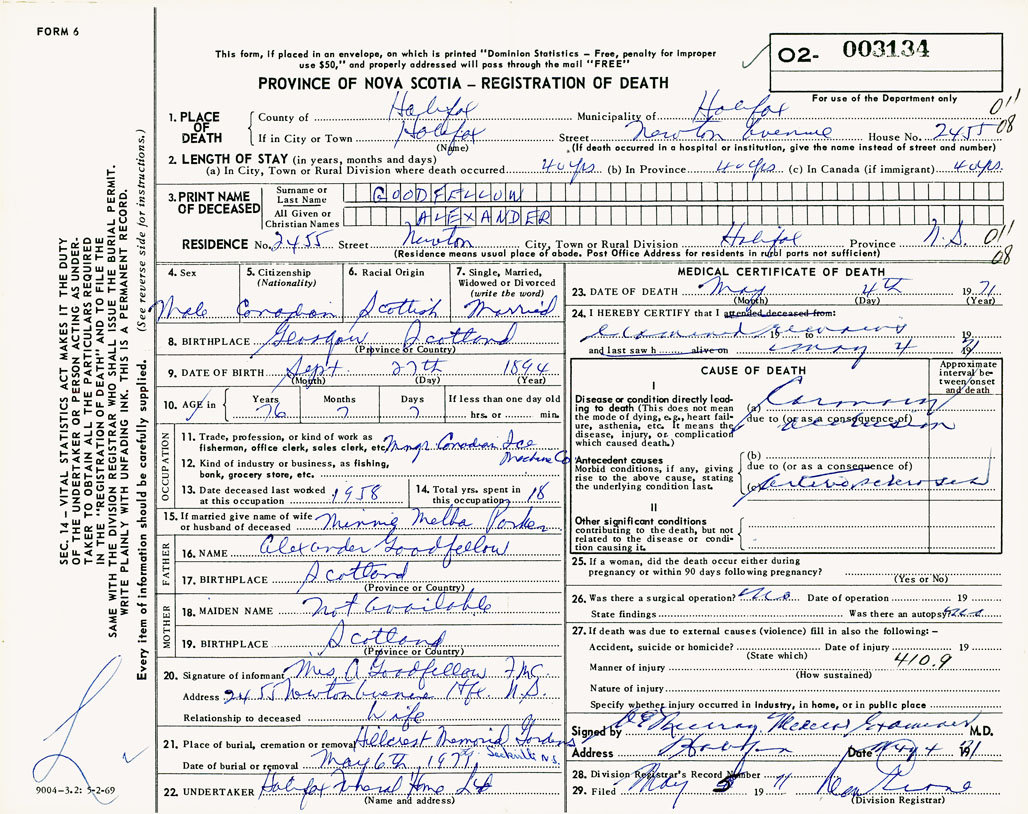 FORM 6
This form, if placed in an envelope, on which is printed "Dominion Statistics – Free, penalty for improper
use $50," and properly addressed will pass through the mail "FREE"
O2- 003134
PROVINCE OF NOVA SCOTIA – REGISTRATION OF DEATH
For use of the Department only
011
08
1. PLACE OF DEATH
County of Halifax Municipality of Halifax
If in City or Town Halifax Street Newton Avenue House No. 2455
(Name) (If death occurred in a hospital or institution, give the name instead of street and number)
2. LENGTH OF STAY (in years, months and days)
(a) In City, Town or Rural Division where death occurred 40 yrs. (b) In Province 40 yrs. (c) In Canada (if immigrant) 40 yrs.
3. PRINT NAME OF DECEASED
Surname or Last Name GOODFELLOW
All Given or Christian Names ALEXANDER
RESIDENCE No. 2455 Street Newton City, Town or Rural Division Halifax Province N.S. 011
(Residence means usual place of abode. Post Office Address for residents in rural parts not sufficient) 08
4. Sex
Male
5. Citizenship (Nationality)
Canadian
6. Racial Origin
Scottish
7. Single, Married, Widowed or Divorced (write the word)
Married
8. BIRTHPLACE Glasgow Scotland
(Province or Country)
9. DATE OF BIRTH Sept. 27th 1894
(Month) (Day) (Year)
10. AGE in Years Months Days If less than one day old
76 7 7 hrs. or min.
OCCUPATION
11. Trade, profession, or kind of work as
fisherman, office clerk, sales clerk, etc. Mngr Canadian Ice
Machine Co
12. Kind of industry or business, as fishing,
bank, grocery store, etc.
13. Date deceased last worked at this occupation 1958
14. Total yrs. spent in this occupation 18
15. If married give name of wife or husband of deceased Minnie Melba Parker
FATHER
16. NAME Alexander Goodfellow
17. BIRTHPLACE Scotland
(Province or Country)
MOTHER
18. MAIDEN NAME Not available
19. BIRTHPLACE Scotland
(Province or Country)
20. Signature of informant Mrs. A Goodfellow
Address 2455 Newton Avenue Hfx N.S.
Relationship to deceased Wife
21. Place of burial, cremation or removal Hillcrest Memorial Gardens
Sackville N.S.
Date of burial or removal May 6th, 1971
22. UNDERTAKER Halifax Funeral Home Ltd
(Name and address)
MEDICAL CERTIFICATE OF DEATH
23. DATE OF DEATH May 4th 1971
(Month) (Day) (Year)
24. I HEREBY CERTIFY that I attended deceased from:
examined remains 19 to 19
and last saw h alive on May 4 1971
CAUSE OF DEATH
Approximate interval between onset and death
I
Disease or condition directly leading to death (This does not mean the mode of dying, e.g., heart failure, asthenia, etc. It means the disease, injury, or complication which caused death.)
(a) Coronary
due to (or as a consequence of)
occlusion
Antecedent causes
Morbid conditions, if any, giving rise to the above cause, stating the underlying condition last.
(b)
due to (or as a consequence of)
(c) arteriosclerosis
II
Other significant conditions
contributing to the death, but not related to the disease or condition causing it.
25. If a woman, did the death occur either during
pregnancy or within 90 days following pregnancy?
(Yes or No)
26. Was there a surgical operation? no Date of operation 19
State findings Was there an autopsy?
27. If death was due to external causes (violence) fill in also the following: –
Accident, suicide or homicide? Date of injury 19
(State which) 410.9
Manner of injury
(How sustained)
Nature of injury
Specify whether injury occurred in industry, in home, or in public place
Signed by Murray, Medical Examiner M.D.
Address Halifax Date May 4 1971
28. Division Registrar's Record Number
29. Filed May 5 1971
(Division Registrar)
SEC. 14 – VITAL STATISTICS ACT MAKES IT THE DUTY
OF THE UNDERTAKER OR PERSON ACTING AS UNDER-
TAKER TO OBTAIN ALL THE PARTICULARS REQUIRED
IN THE "REGISTRATION OF DEATH" AND TO FILE THE
SAME WITH THE DIVISION REGISTRAR WHO SHALL ISSUE THE BURIAL PERMIT.
WRITE PLAINLY WITH UNFADING INK. THIS IS A PERMANENT RECORD.
Every item of information should be carefully supplied. (See reverse side for instructions.)
9004-3.2: 5-2-69